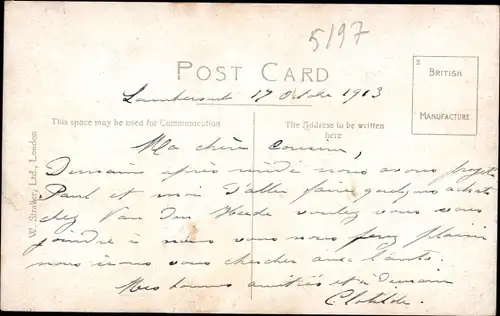 5197
POST CARD
2
BRITISH
MANUFACTURE.
Lambersart 17 Octobre 1913
This space may be used for Communication
The Address to be written
here
W. Straker, Ltd., London
Ma chère Cousine,
Demain après midi nous avons projeté
Paul et moi d'aller faire quelques achats
chez Van den Heede voulez vous vous
joindre à nous vous nous ferez plaisir
nous irons vous chercher avec l'auto.
Mes bonnes amitiés et à demain
Clotilde.